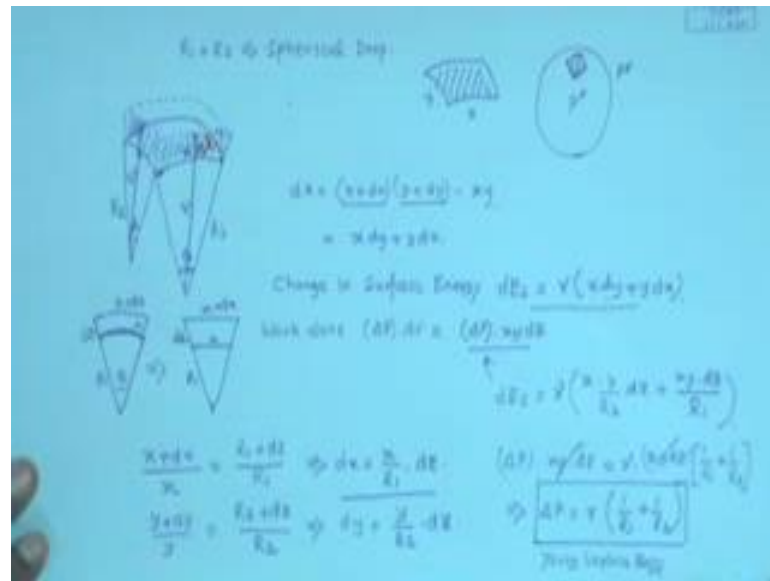 R₁ = R₂ ⇒ Spherical Drop
dA = (x+dx)(y+dy) - xy
= xdy + ydx
Change in Surface Energy dEs = γ(xdy+ydx)
Work done (ΔP).dV = (ΔP).xydz
dEs = γ(x.y/R₂ dz + xy.dz/R₁)
x+dx/x = R₁+dz/R₁ ⇒ dx = x/R₁ . dz
y+dy/y = R₂+dz/R₂ ⇒ dy = y/R₂ . dz
(ΔP) xydz = γ.(xydz)[1/R₁ + 1/R₂]
⇒ ΔP = γ(1/R₁ + 1/R₂)
Young Laplace Eqn